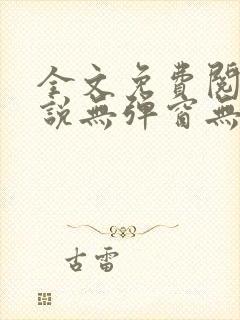 全文免費閱
說無彈窗無
古雷